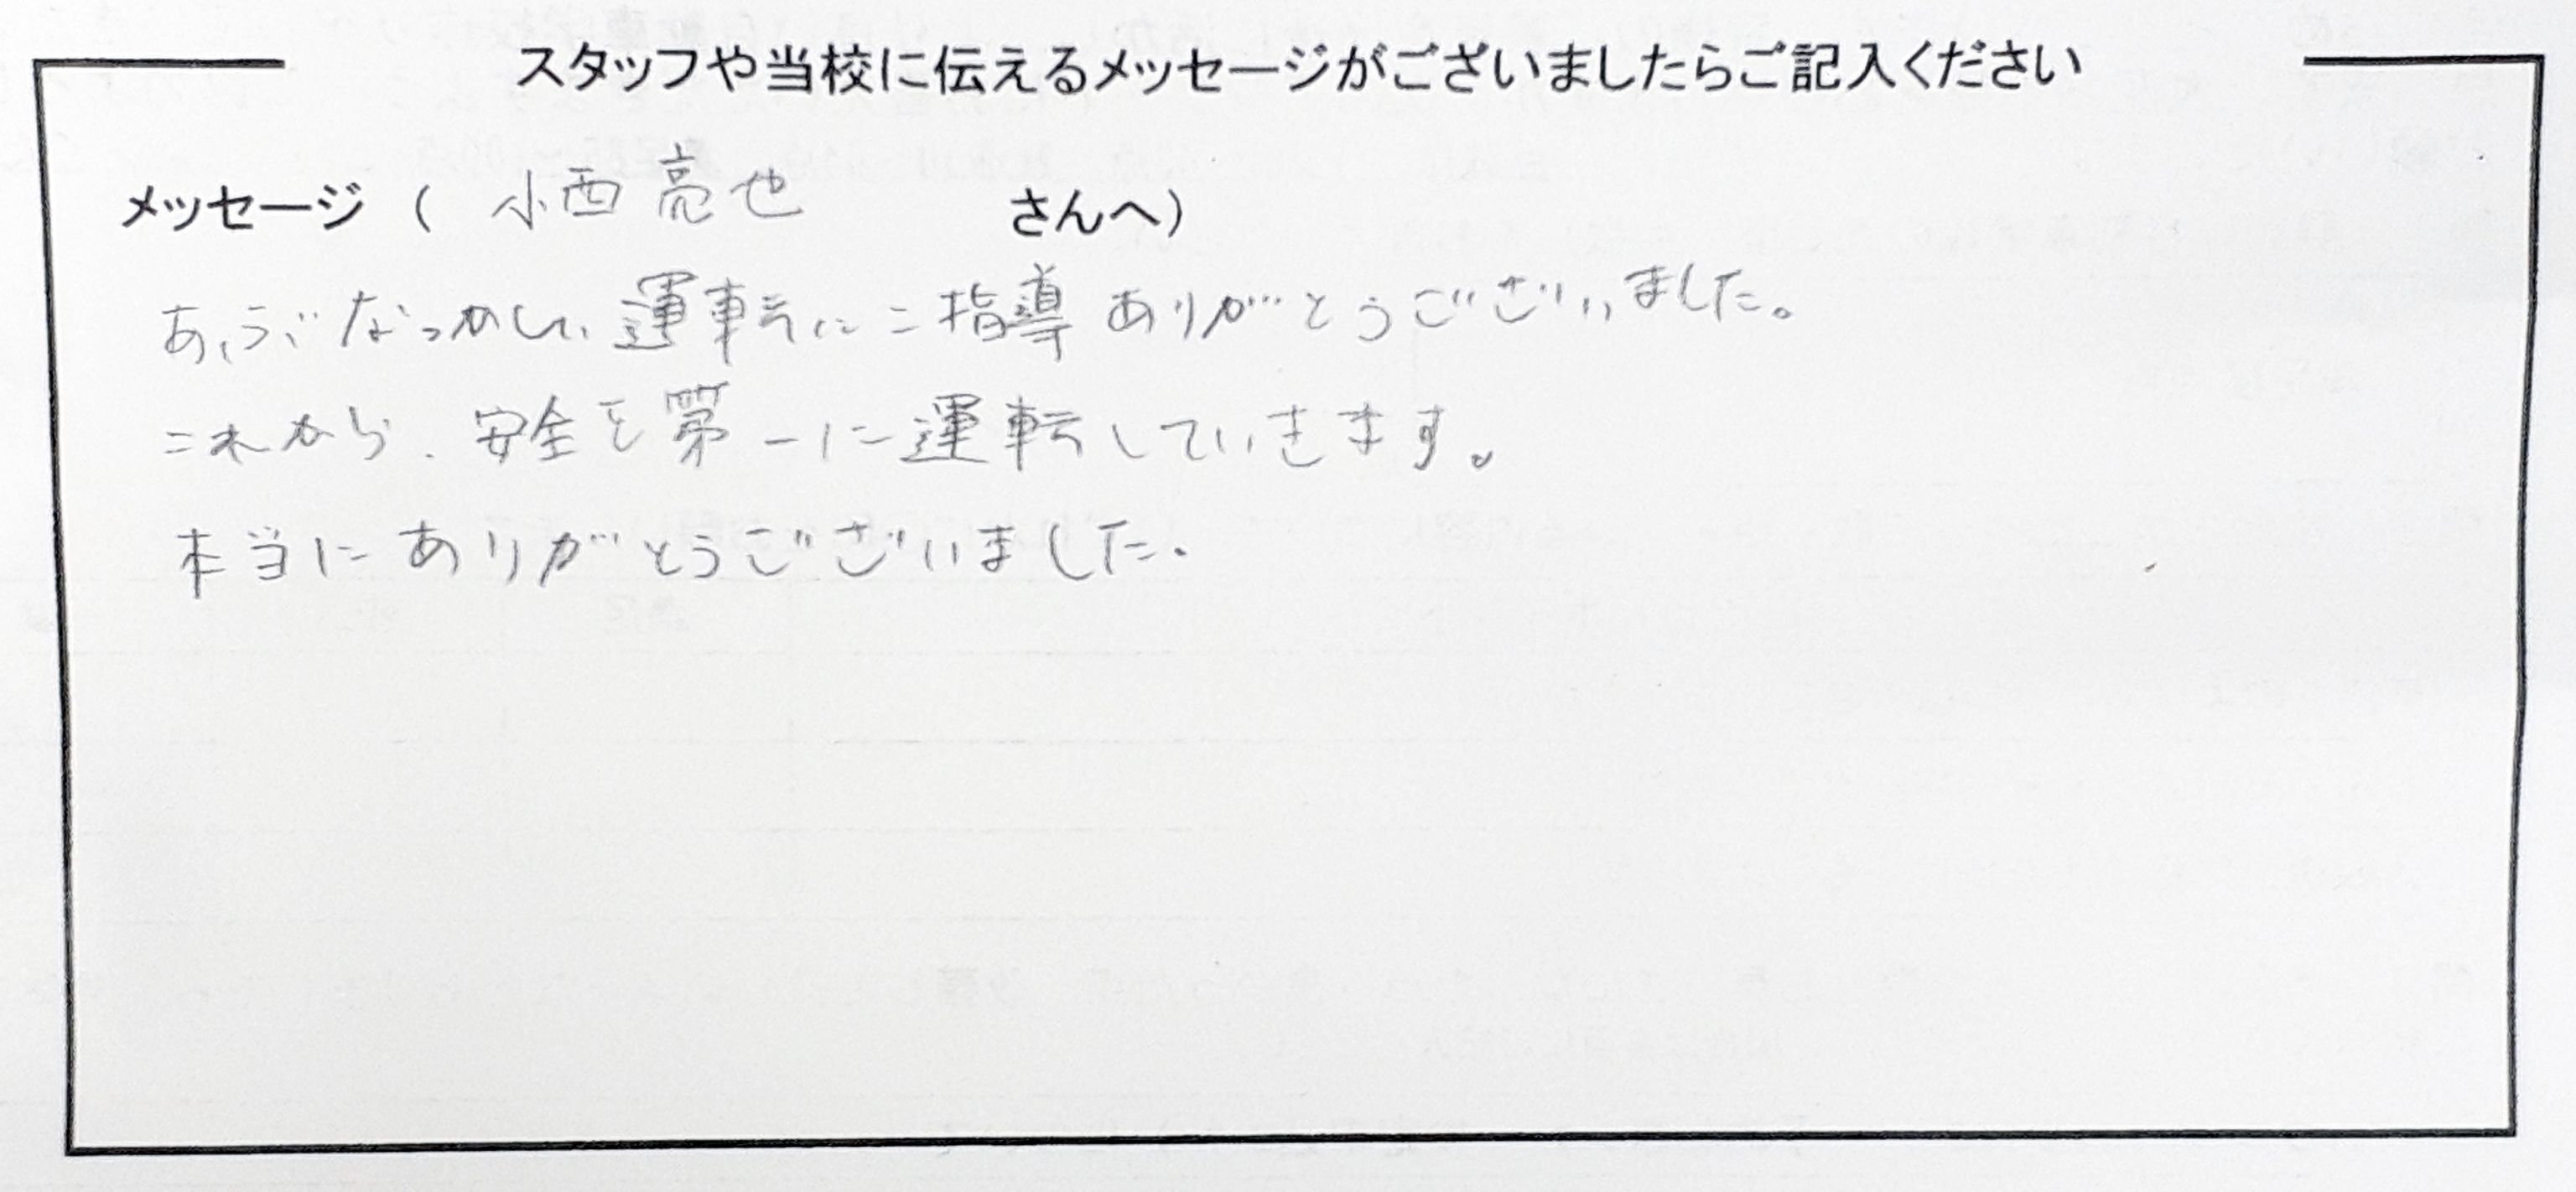 スタッフや当校に伝えるメッセージがございましたらご記入ください
メッセージ ( 小西亮也 さんへ)
あぶなっかしい運転にご指導ありがとうございました。
これから、安全を第一に運転していきます。
本当にありがとうございました。